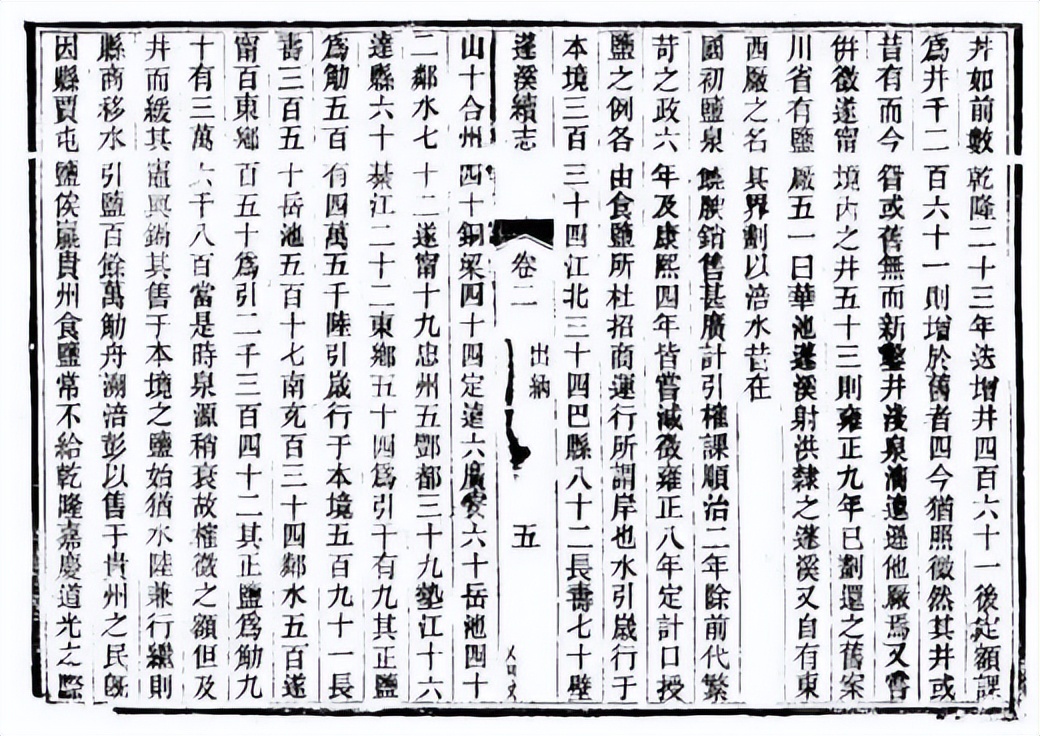 井如前數乾隆二十三年迭增井四百六十一後定額課
爲井千二百六十一則增於舊者四今猶照徵然其井或
昔有而今眢或舊無而新鑿井淺泉滴迥遜他廠焉又嘗
併徵遂甯境內之井五十三則雍正九年已劃還之舊案
川省有鹽廠五一曰華池蓬溪射洪隸之蓬溪又自有東
西廠之名其界劃以涪水昔在
國初鹽泉饒腴銷售甚廣計引榷課順治二年除前代繁
苛之政六年及康熙四年皆嘗減徵雍正八年定計口授
鹽之例各由食鹽所杜招商運行所謂岸也水引歲行于
本境三百三十四江北三十四巴縣八十二長壽七十壁
蓬溪續志 卷二 出納 五
山十合州四十銅梁四十四定遠六廣安六十岳池四十
二鄰水七十二遂甯十九忠州五酆都三十九墊江十六
達縣六十綦江二十二東鄉五十四爲引千有九其正鹽
爲觔五百有四萬五千陸引歲行于本境五百九十一長
壽三百五十岳池五百十七南充百三十四鄰水五百遂
甯百東鄉百五十爲引二千三百四十二其正鹽爲觔九
十有三萬六千八百當是時泉源稍衰故榷徵之額但及
井而緩其竈與鍋其售于本境之鹽始猶水陸兼行繼則
縣商移水引鹽百餘萬觔舟溯涪彭以售于貴州之民旣
因縣賈屯鹽俟贏貴州食鹽常不給乾隆嘉慶道光之際